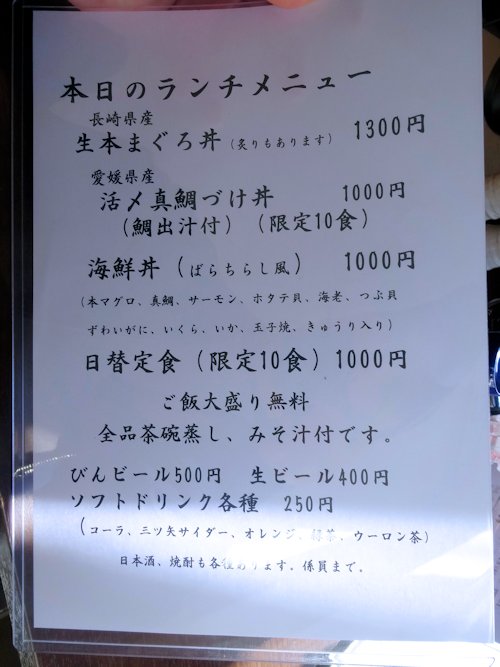 本日のランチメニュー
長崎県産
生本まぐろ丼（炙りもあります） 1300円
愛媛県産
活〆真鯛づけ丼 1000円
（鯛出汁付）（限定10食）
海鮮丼（ばらちらし風） 1000円
（本マグロ、真鯛、サーモン、ホタテ貝、海老、つぶ貝
ずわいがに、いくら、いか、玉子焼、きゅうり入り）
日替定食（限定10食）1000円
ご飯大盛り無料
全品茶碗蒸し、みそ汁付です。
びんビール500円 生ビール400円
ソフトドリンク各種 250円
（コーラ、三ツ矢サイダー、オレンジ、緑茶、ウーロン茶）
日本酒、焼酎も各種あります。係員まで。